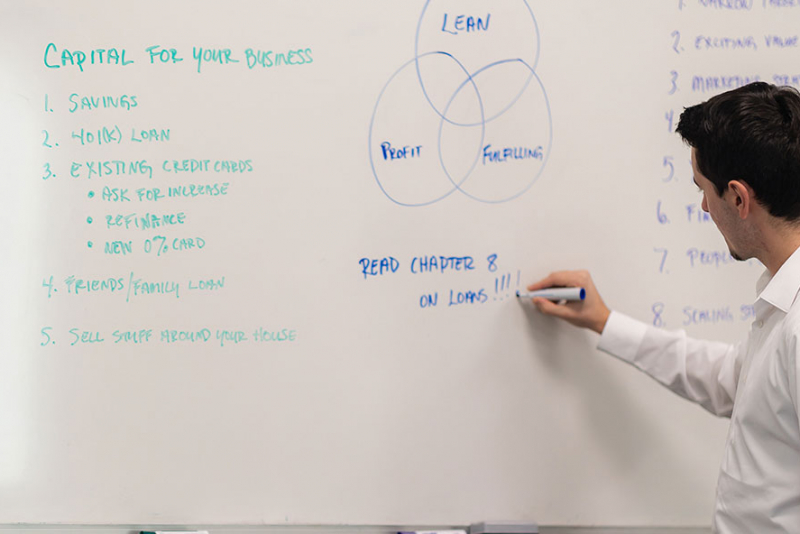 CAPITAL FOR YOUR BUSINESS
1. SAVINGS
2. 401(K) LOAN
3. EXISTING CREDIT CARDS
• ASK FOR INCREASE
• REFINANCE
• NEW 0% CARD
4. FRIENDS/FAMILY LOAN
5. SELL STUFF AROUND YOUR HOUSE
LEAN
PROFIT
FULFILLING
READ CHAPTER 8
ON LOANS!!!!
1. NARROW
2. EXCITING VALUE
3 MARKETING
4.
5.
6.
7.
8. SCALING